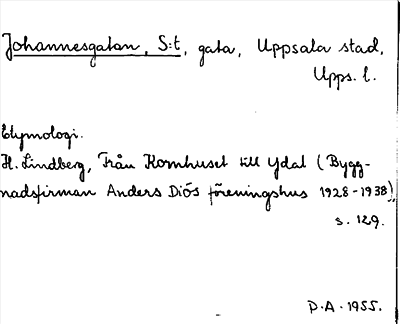 Johannesgatan, S:t, gata, Uppsala stad,
Upps. l.
Etymologi.
H. Lindberg, Från Kornhuset till Ydal (Bygg-
nadsfirman Anders Diös föreningshus 1928-1938),
s. 129.
P.A. 1955.